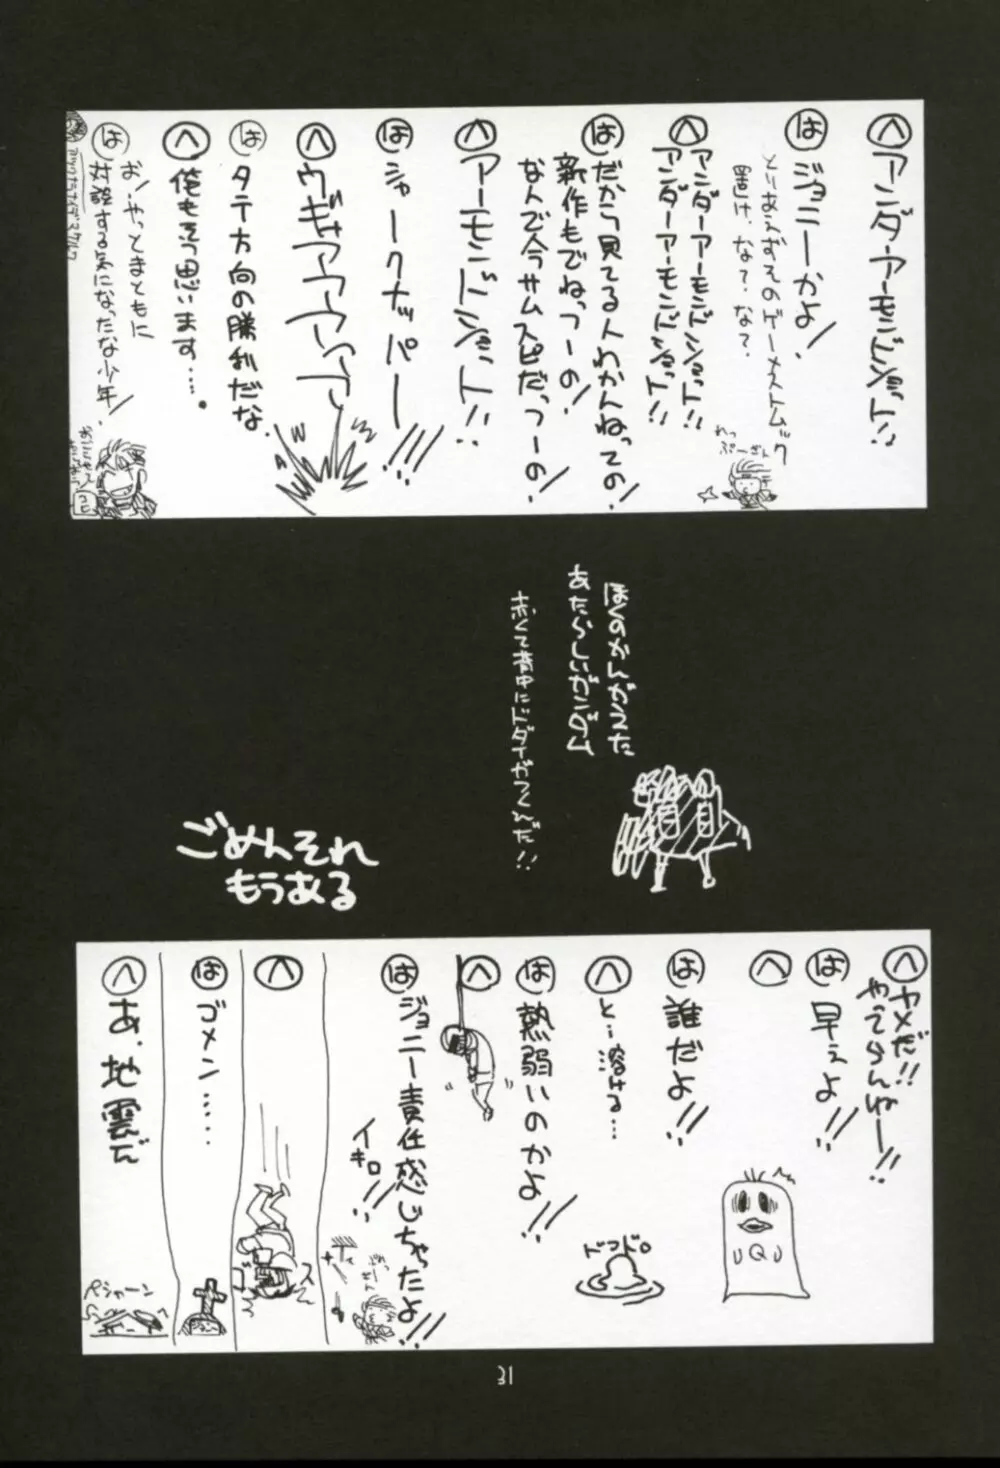 へ アンダーアーモンドショット!!
は ジョニーかよ!
とりあえずそのゲーメストムック
置け、な?な?
れっぷーけん
へ アンダーアーモンドショット!!
アンダーアーモンドショット!!
は だから見てる人わかんねっての!
新作もでねっつーの!
なんで今サムスピだっつーの!
へ アーモンドショット!!
は シャークナッパー!!!
へ ウギャアアアアア
は タテ方向の勝利だな
へ 俺もそう思います……。
お!やっとまともに
は 対談する気になったな少年!
ぼくのかんがえた
あたらしいガンダム
赤くて背中にドダイがつくんだ!!
ごめんそれ
もうある
へ ヤメだ!!
やってらんねー!!
は 早えよ!!
へ
は 誰だよ!!
へ と…溶ける…
ドロドロ
は 熱弱いのかよ!!
へ
は ジョニー責任感じちゃったよ!!
へ
は ゴメン……
へ あ、地震だ
ペシャーン
31